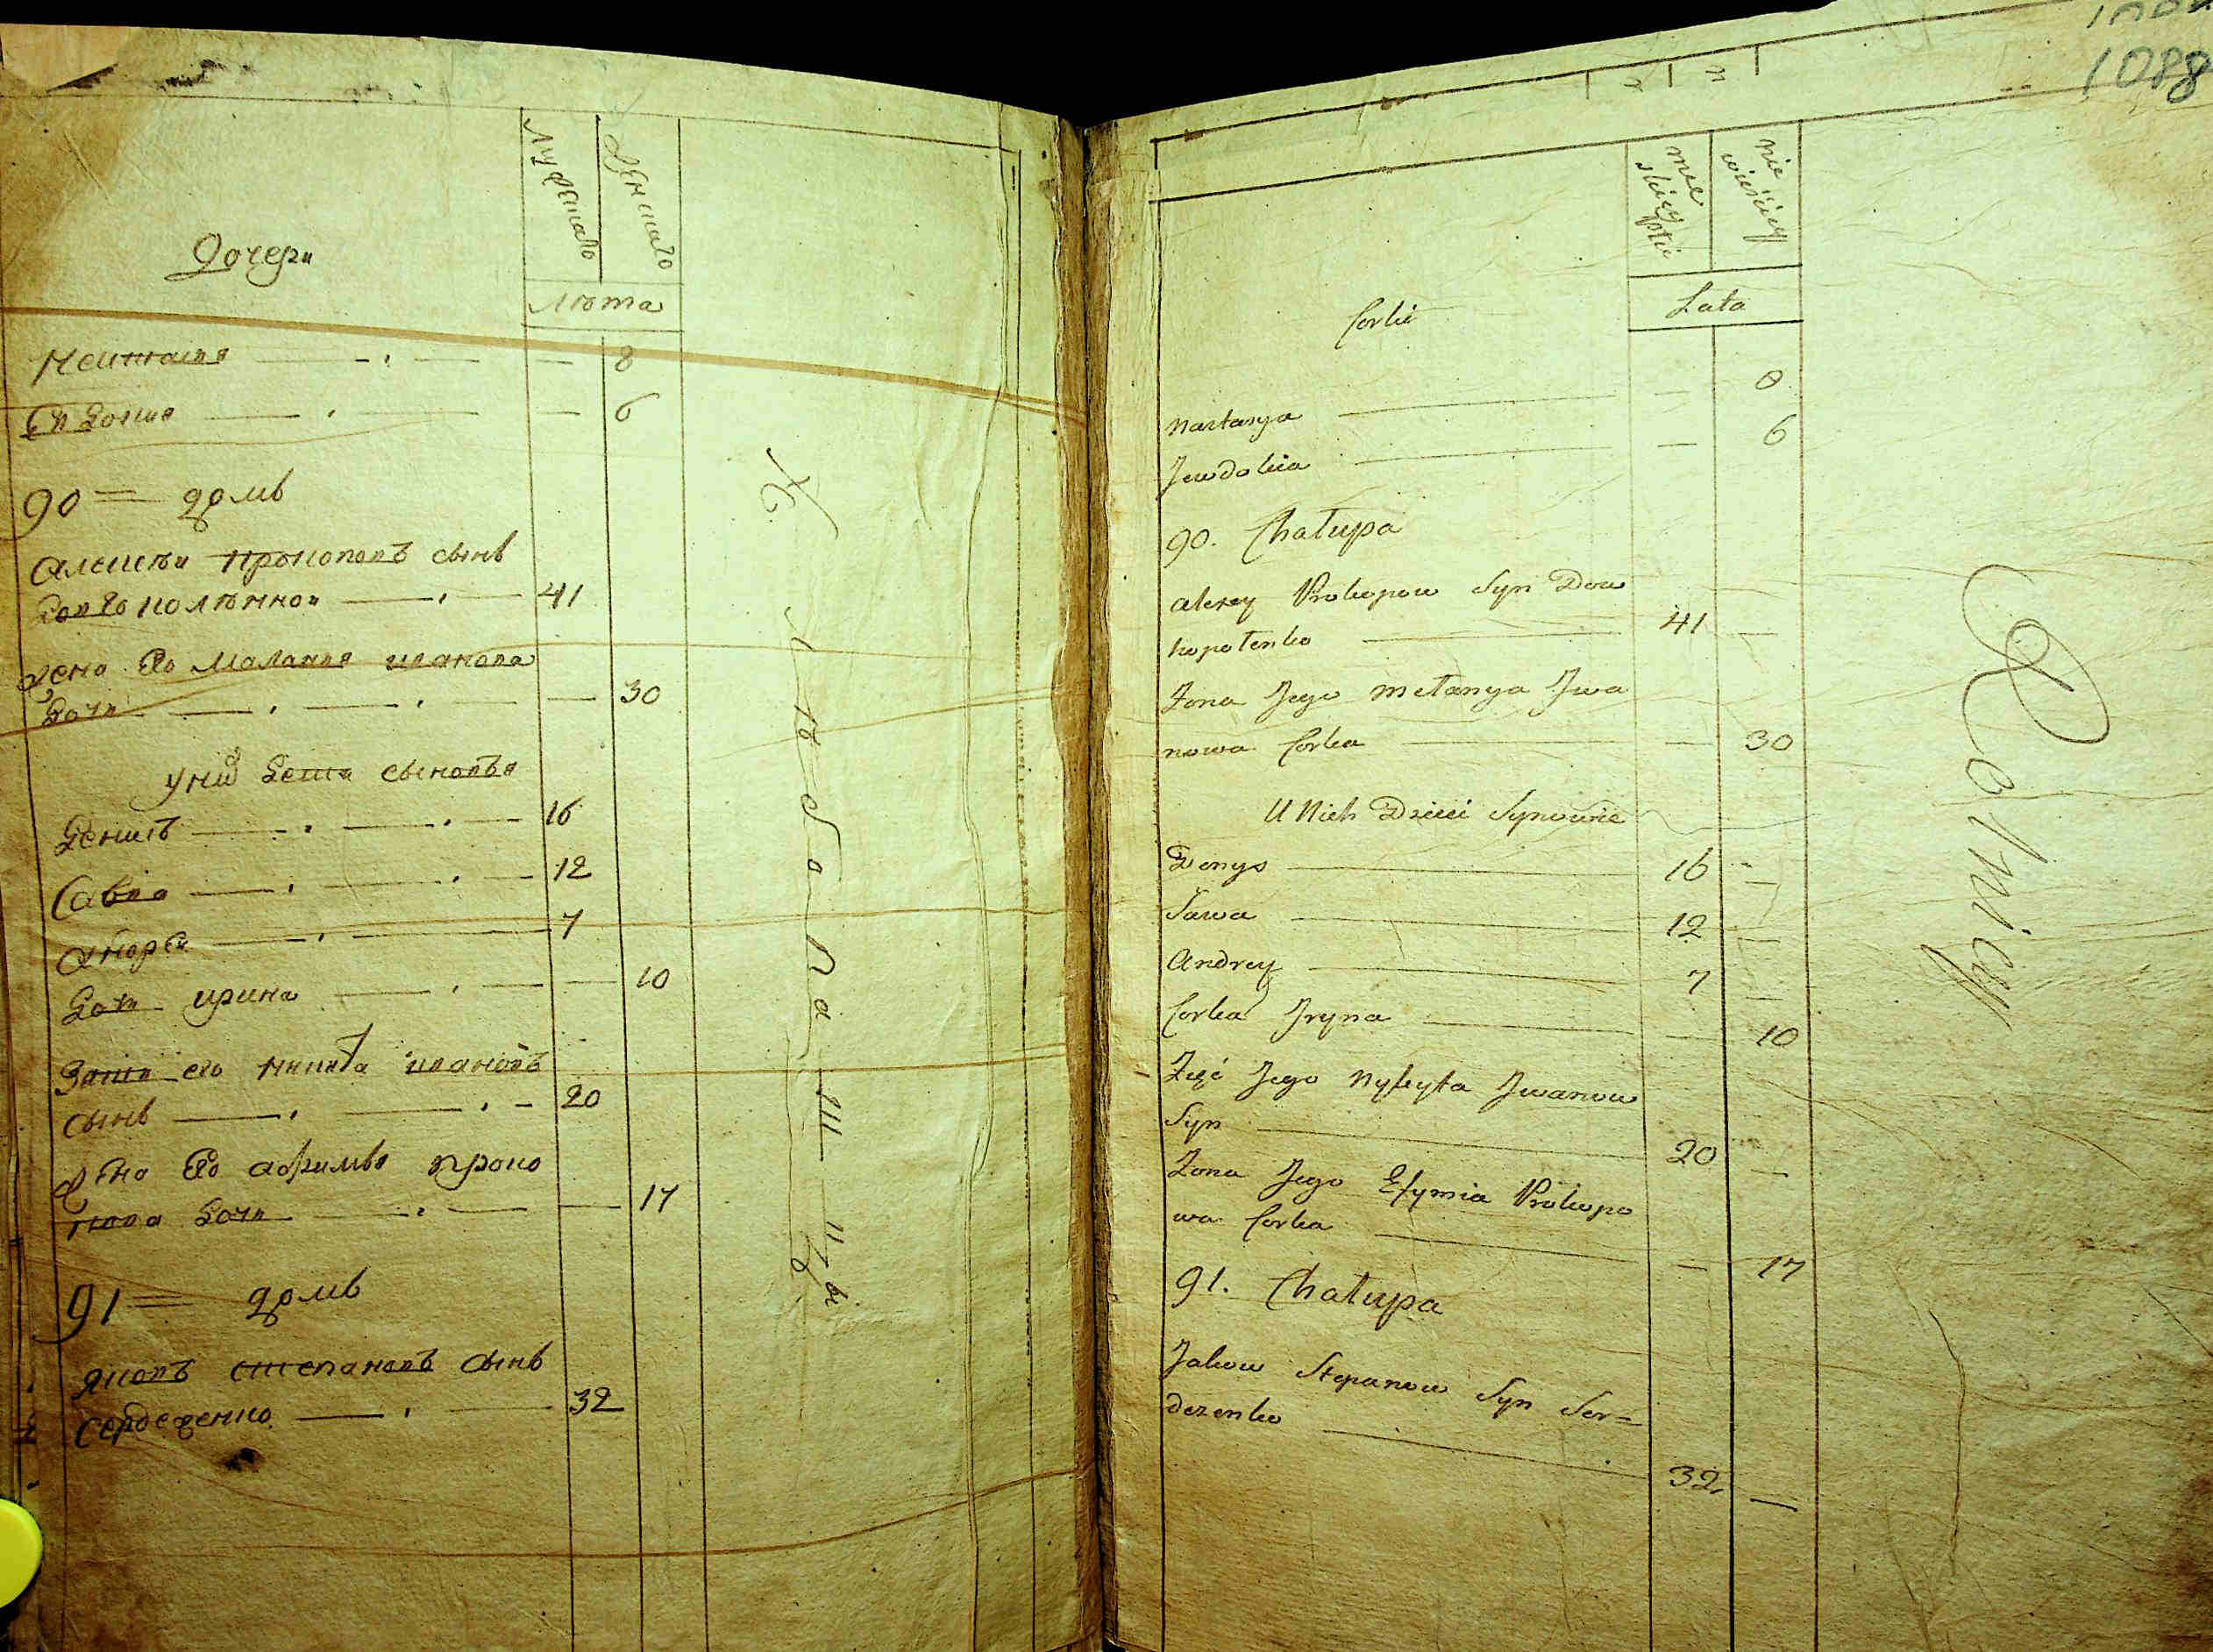 Дочери
Мужеска
Женска
Лѣта
8
6
90 = домъ
Алексѣй Прокоповъ сынъ
41
жена Его Маланія иванова
дочь 30
у них дети сыновья
Денисъ 16
Савва 12
Андрей 7
дочь ирина 10
Зять его никита ивановъ
сынъ 20
жена Его афимья проко
пова дочь 17
91 = домъ
Яковъ степановъ сынъ
сердеженко 32
Хлѣбопашцы
1088
męskiey płci
niewieściey
Lata
Corki
Nastasya 8
Jewdokia 6
90. Chałupa
Alexey Prokopow Syn Dow
hopołenko 41
Żona Jego Mełanya Jwa
nowa Corka 30
U Nich Dzieci Synowie
Denys 16
Sawa 12
Andrey 7
Corka Jryna 10
Zięć Jego Nykyta Jwanow
Syn 20
Żona Jego Efymia Prokopo
wa Corka 17
91. Chałupa
Jakow Stepanow Syn Ser=
dezenko 32
Rolnicy